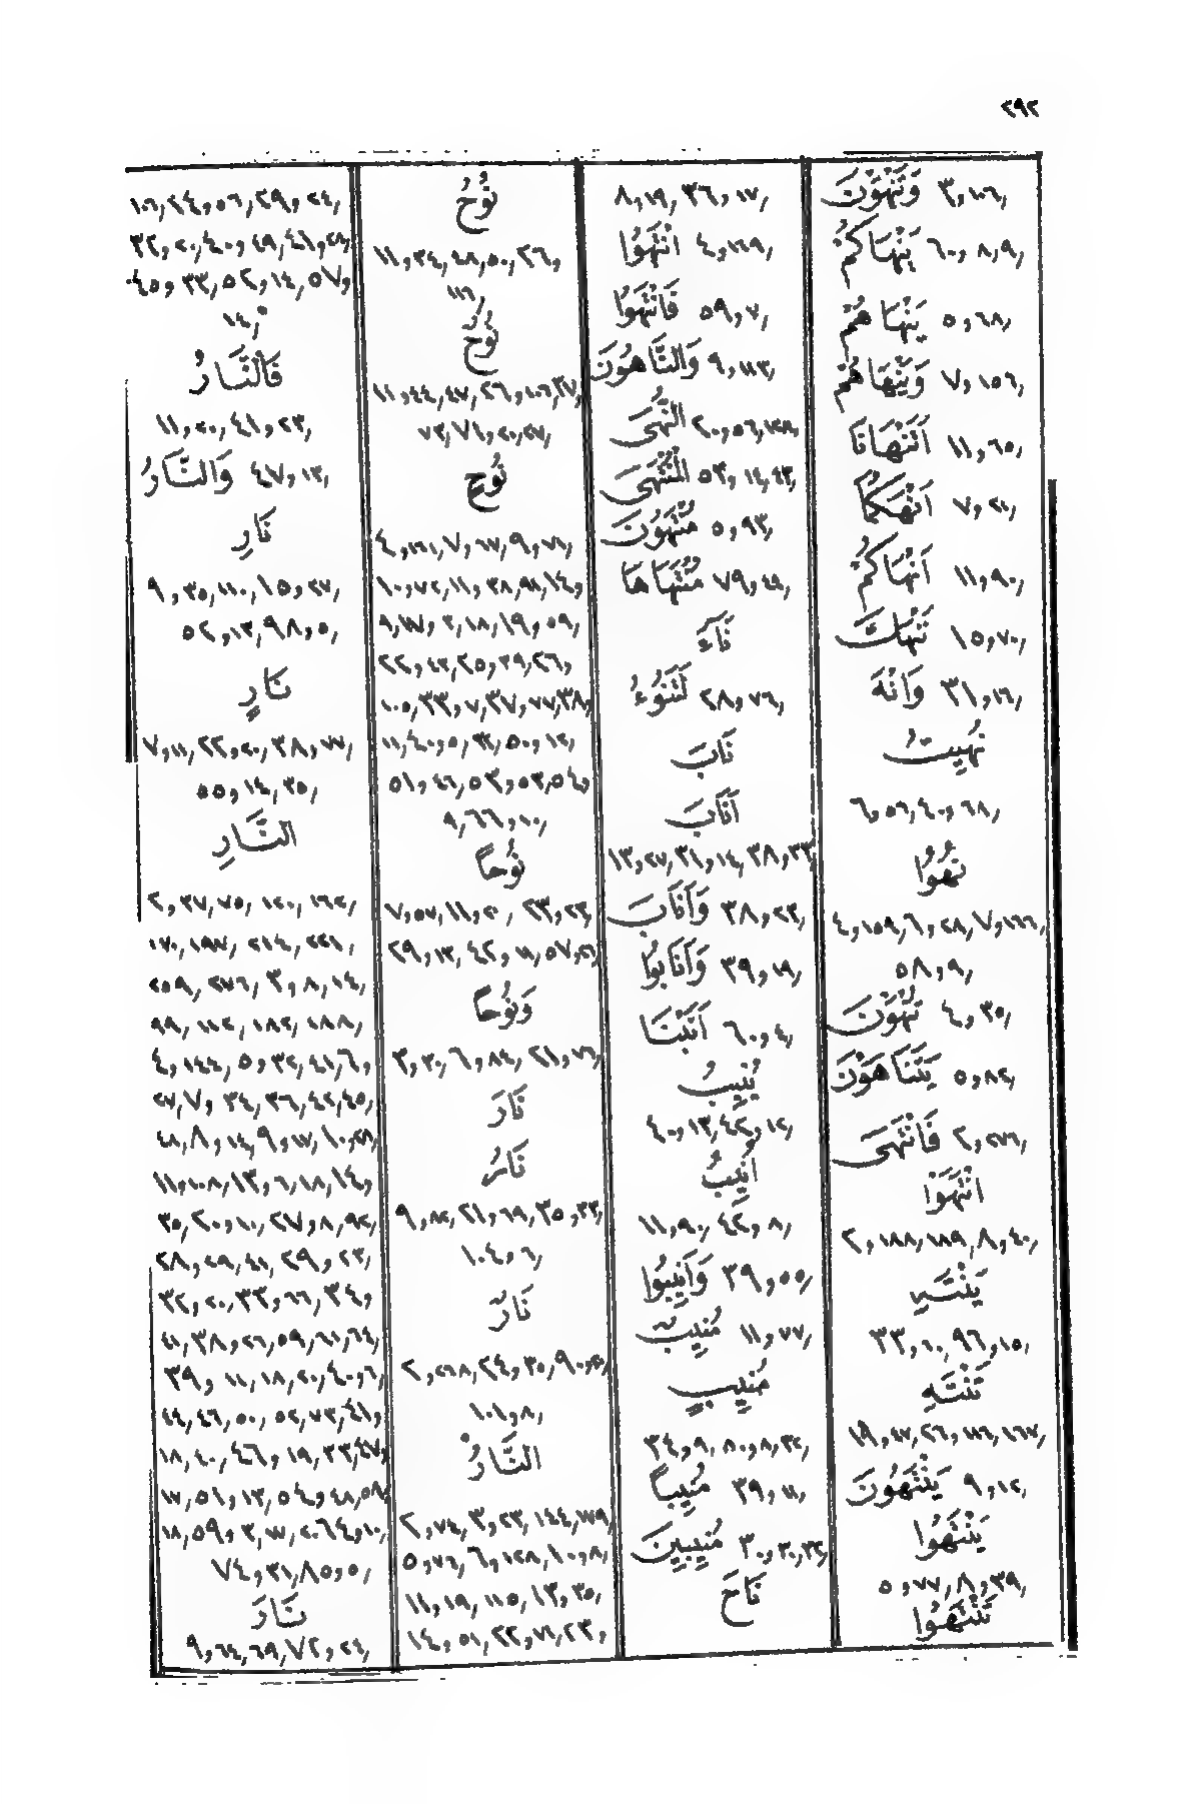 ٢٩٢
وَتَنْهَوْنَ ٣و١٠٦,
يَنْهَاكُمْ ٦٠و٨,٩,
يَنْهَاهُمُ ٥و٦٨,
وَيَنْهَاهُمْ ٧و١٥٦,
اَتَنْهَانَا ١١و٦٥,
اَنْهَكُمَا ٧و٢١,
اَنْهَاكُمْ ١١و٩٠,
نَنْهَكَ ١٥و٧٠,
وَانْهَ ٣١و١٦,
نُهِيتُ
٦و٥٦, ٤٠و٦٨,
نُهُوا
٤و١٥٩, ٦و٢٨, ٧و١٦٦,
٥٨و٩,
تُنْهَوْنَ ٤و٣٥,
يَتَنَاهَوْنَ ٥و٨٢,
فَانْتَهَى ٢و٢٧٦,
انْتَهَوْا
٢و١٨٨, ١٨٩, ٨و٤٠,
يَنْتَهِ
٣٣و٦٠, ٩٦و١٥,
تَنْتَهِ
١٩و٤٧, ٢٦و١١٦, ١٦٧,
يَنْتَهُونَ ٩و١٢,
يَنْتَهُوا
٥و٧٧, ٨و٣٩,
تَنْتَهُوا
٨و١٩, ٣٦و١٧,
انْتَهُوا ٤و١٦٩,
فَانْتَهُوا ٥٩و٧,
وَالنَّاهُونَ ٩و١١٣,
النُّهَى ٢٠و٥٦, ١٢٨,
الْمُنْتَهَى ٥٣و١٤, ٤٣,
مُنْتَهُونَ ٥و٩٣,
مُنْتَهَاهَا ٧٩و٤٤,
نَاءَ
لَتَنُوءُ ٢٨و٧٦,
نَابَ
اَنَابَ
١٣و٢٧, ٣١و١٤, ٣٨و٣٣,
وَاَنَابَ ٣٨و٢٣,
وَاَنَابُوا ٣٩و١٩,
اَنَبْنَا ٦٠و٤,
يُنِيبُ
٤٠و١٣, ٤٢و١٢,
اُنِيبُ
١١و٩٠, ٤٢و٨,
وَاَنِيبُوا ٣٩و٥٥,
مُنِيبٌ ١١و٧٧,
مُنِيبٍ
٣٤و٩, ٥٠و٨, ٣٢,
مُنِيباً ٣٩و١١,
مُنِيبِينَ ٣٠و٣٠, ٣٢,
نَاحَ
نُوحُ
١١و٣٤, ٤٨, ٥٠, ٢٦و
١١٦,
نُوحٌ
١١و٤٤, ٤٧, ٢٦و١٠٦, ٣٧و
٧٣, ٧١و٢٠, ٢٧,
نُوحٍ
٤و١٦١, ٧و٦٧, ٩و٧١,
١٠و٧٢, ١١و٣٨, ٩١, ١٤و
٩, ١٧و٣, ١٨, ١٩و٥٩,
٢٢و٤٣, ٢٥و٣٩, ٢٦و
١٠٥, ٣٣و٧, ٣٧و٧٧, ٣٨و
١١, ٤٠و٥, ٣٢, ٥٠و١٢,
٥١و٤٦, ٥٣و٥٣, ٥٤و
٩, ٦٦و١٠,
نُوحاً
٧و٥٧, ١١و٢٠, ٢٣و٢٣,
٢٩و١٣, ٤٢و١١, ٥٧و٢٦,
وَنُوحاً
٣و٣٠, ٦و٨٤, ٢١و٧٦,
نَارَ
نَارُ
٩و٨٢, ٢١و٦٩, ٣٥و٣٣,
١٠٤و٦,
نَارٌ
٢و٢٦٨, ٢٤و٣٥, ٩٠و٢٠,
١٠١و٨,
النَّارُ
٢و٧٤, ٣و٢٣, ١٤٤, ١٧٩,
٥و٧٦, ٦و١٢٨, ١٠و٨,
١١و١٩, ١١٥, ١٣و٣٥,
١٤و٥١, ٢٢و٧١, ٢٣و
١٠٦, ٢٤و٥٦, ٢٩و٢٤,
٣٢و٢٠, ٤٠و٤٩, ٤١و٢٨,
٤٥و٣٣, ٥٢و١٤, ٥٧و
١٤,
فَالنَّارُ
١١و٢٠, ٤١و٢٣,
وَالنَّارُ ٤٧و١٣,
نَارِ
٩و٣٥, ١١٠, ١٥و٢٧,
٥٢و١٣, ٩٨و٥,
نَارٍ
٧و١١, ٢٢و٢٠, ٣٨و٧٧,
٥٥و١٤, ٣٥,
النَّارِ
٢و٣٧, ٧٥, ١٢٠, ١٦٢,
١٧٠, ١٩٧, ٢١٤, ٢٢١,
٢٥٩, ٢٧٦, ٣و٨, ١٤,
٩٩, ١١٢, ١٨٢, ١٨٨,
٤و١٤٤, ٥و٣٢, ٤١, ٦و
٢٧, ٧و٣٤, ٣٦, ٤٢, ٤٥,
٤٨, ٨و١٤, ٩و١٧, ١٠و٢٨,
١١و١٠٨, ١٣و٦, ١٨, ١٤و
٣٥, ٢٠و١٠, ٢٧و٨, ٩٢,
٢٨و٢٩, ٤١, ٢٩و٢٣,
٣٢و٢٠, ٣٣و٦٦, ٣٤و
٤١, ٣٨و٢٦, ٥٩, ٦١, ٦٤,
٣٩و١١, ١٨, ٢٠, ٤٠و٦,
٤٤, ٤٦, ٥٠, ٥٢, ٧٣, ٤١و
١٨, ٤٠, ٤٦و١٩, ٣٣, ٤٧و
١٧, ٥١و١٣, ٥٤و٤٨, ٥٨و
١٨, ٥٩و٣, ١٧, ٢٠, ٦٤و١٠,
٧٤و٣١, ٨٥و٥,
نَارَ
٩و٦٤, ٦٩, ٧٢و٢٤,